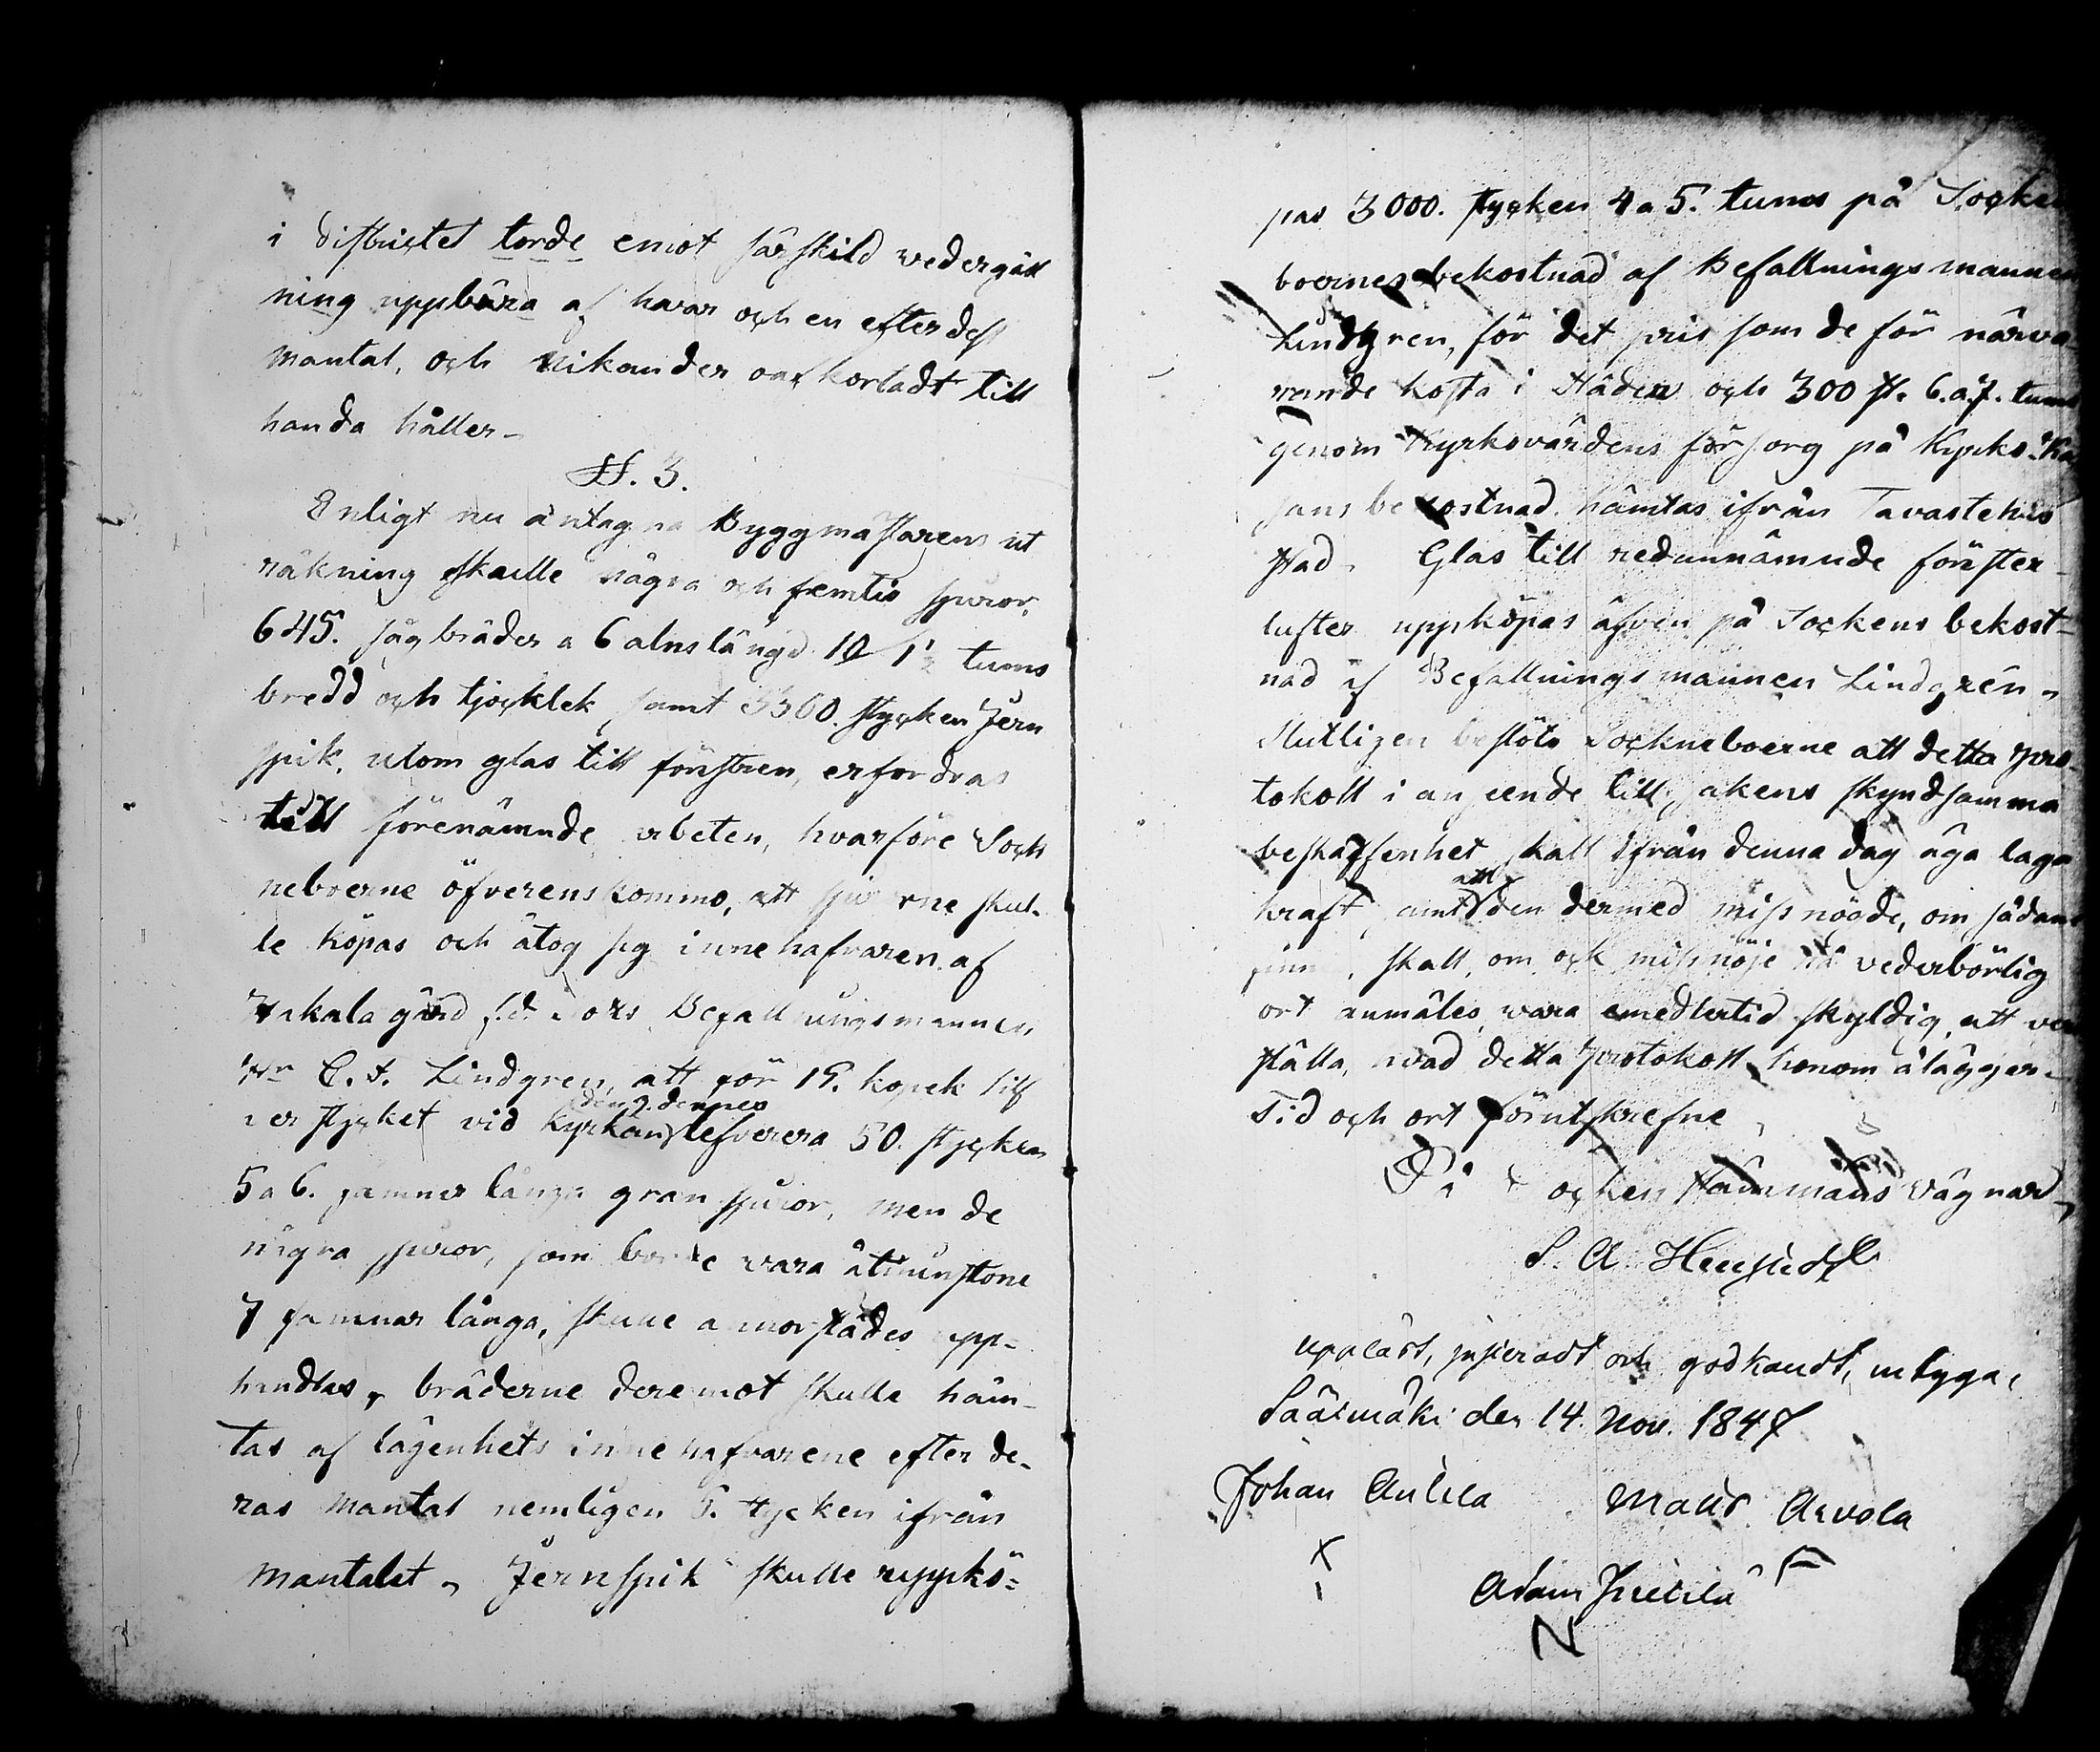 i districtet torde emot särskild vedergäll
ning uppbära af hvar och en efter dess
mantal, och Nikander oafkortadt till
handa håller.
§. 3.
Enligt nu antagna Byggmästarens ut
räkning skulle några och femtio spiror,
645. sågbräder a 6 alns längd 10 1½ tums
bredd och tjocklek samt 3300. stycken Jern
spik, utom glas till fönstren, erfordras
till förenämnde arbeten, hvarföre Sock
neboerne öfverenskommo, att spirorne skul-
le köpas och åtog sig innehafvaren af
gård f.d. Befallningsmannen
Hr C. F. Lindgren, att för 15. kopek silf
ver stycket vid Kyrkan lefverera 50. stycken
5 a 6. famnar långa gran spiror, men de
några spiror, som borde vara åtminstone
7 famnar långa, skulle annorstädes upp-
handlas, bräderne deremot skulle häm-
tas af lägenhets innehafvarene efter de-
ras mantal nemligen 5. stycken ifrån
mantalet. Jernspik skulle uppkö-
pas 3000. stycken 4 a 5. tums på Socken
boernes bekostnad af Befallningsmannen
Lindgren, för det pris som de för närva-
rande kosta i Staden och 300 st. 6. a 7. tums
genom Kyrkovärdens försorg på Kyrko-Kas
sans bekostnad hämtas ifrån Tavastehus
stad. Glas till redannämnde fönster-
lufter uppköpas äfven på Sockens bekost-
nad af Befallningsmannen Lindgren.
Slutligen beslöto Sockneboerne att detta pro-
tokoll i anseende till sakens skyndsamma
beskaffenhet skall ifrån denna dag äga laga
kraft, samt att den dermed missnögde, om sådane
finnes, skall, om ock missnöje på vederbörlig
ort anmäles, vara emedlertid skyldig, att verk
ställa, hvad detta Protokoll honom ålägger.
Tid och ort förutskrefne
På Socken Nämmans vägnar,
S. A.
uppläst, justeradt och godkändt, intyga,
Sääxmäki den 14. Nov. 1847
Johan Anttila Matts Arvola
Adam